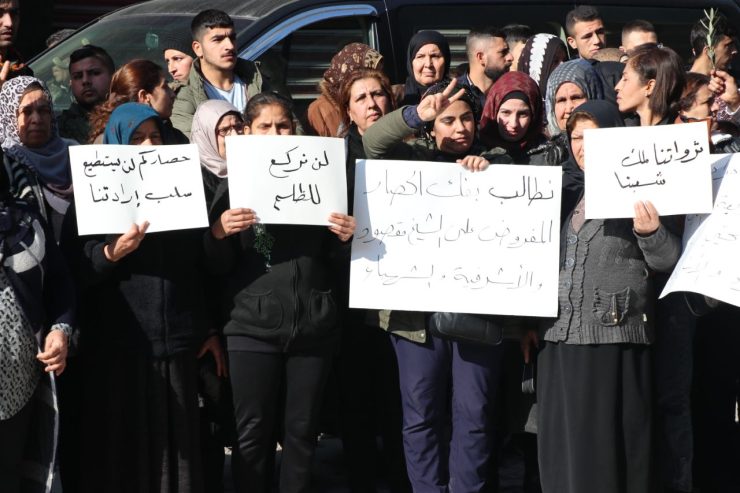 ثرواتنا ملك
شعبنا
نطالب بفك الحصار
المفروض على الشيخ مقصود
والأشرفية والشهباء
لن نركع
للظلم
حصاركم لن يستطيع
سلب إرادتنا